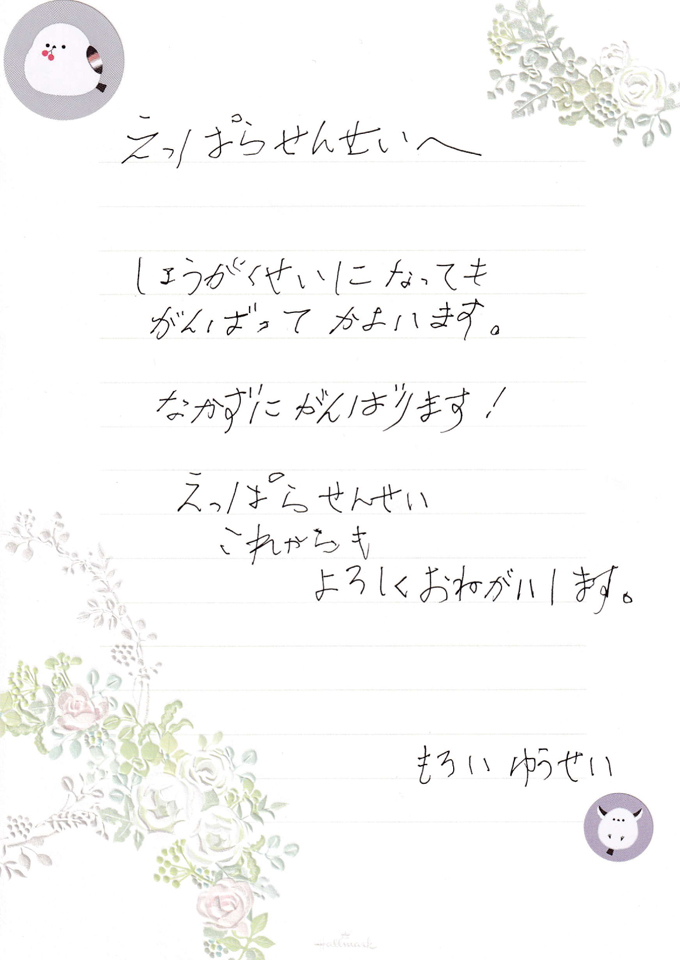 えっぱらせんせいへ
しょうがくせいになっても
がんばって かよいます。
なかずに がんばります！
えっぱらせんせい
これからも
よろしくおねがいします。
もろい ゆうせい
Hallmark